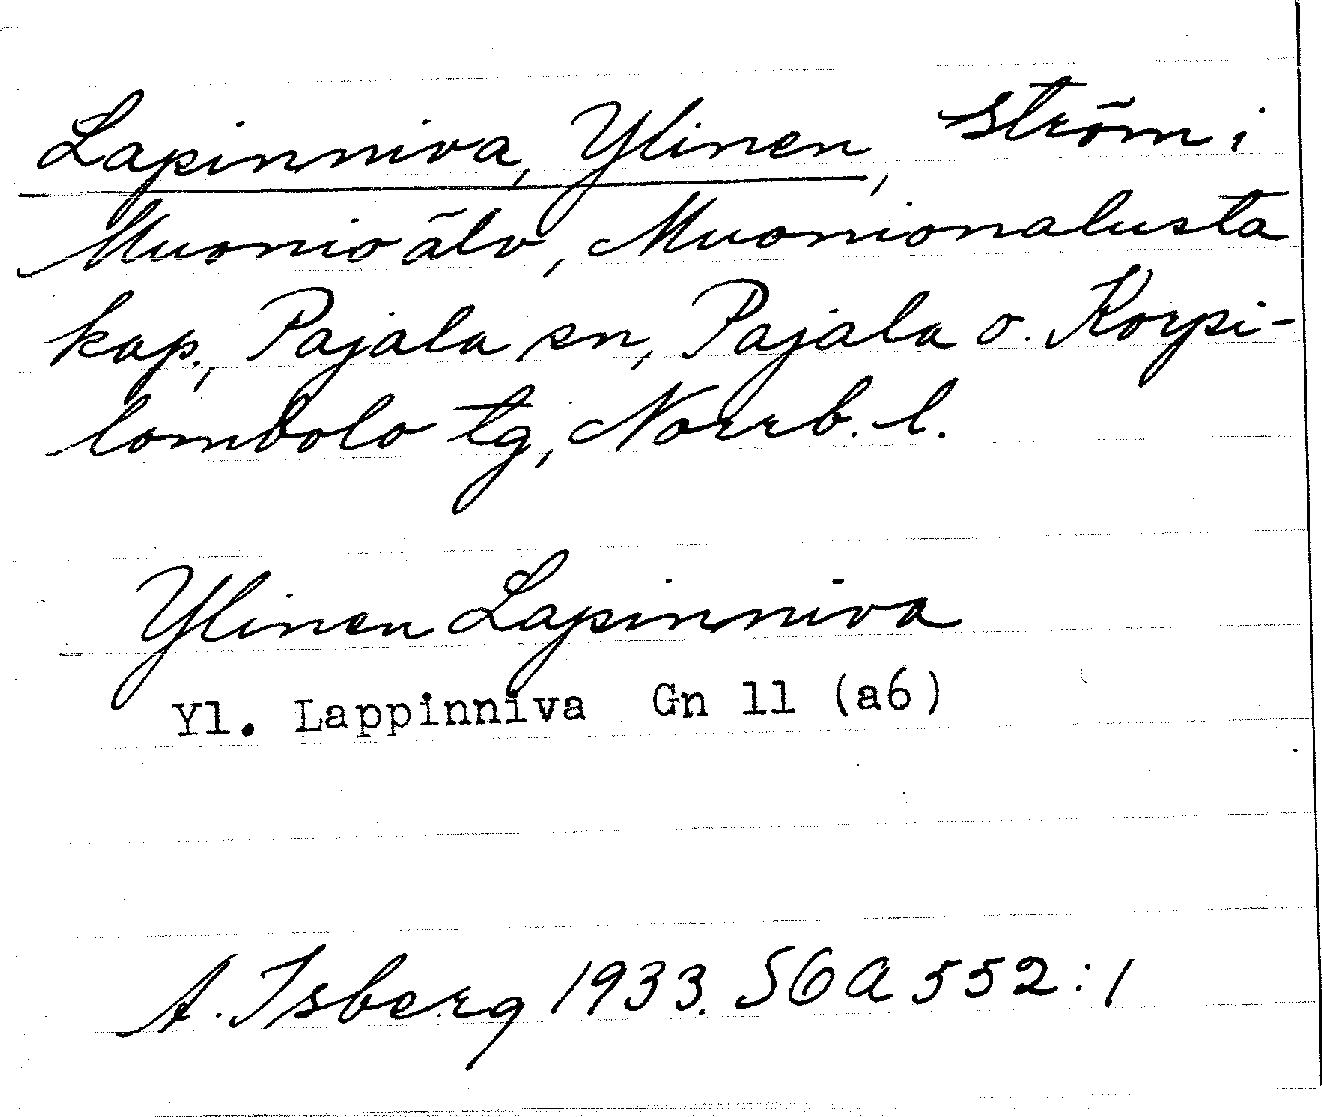 Lapinniva, Ylinen, ström i
Muonio älv, Muonionalusta
kap., Pajala sn, Pajala o. Korpi-
lombolo tg, Norrb. l.
Ylinen Lapinniva
Yl. Lappinniva Gn 11 (a6)
A. Isberg 1933. SGA 552:1